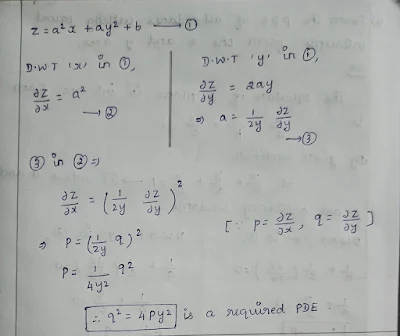 z = a²x + ay² + b → ①
D.W.T 'x' in ①,
∂z/∂x = a² → ②
D.W.T 'y' in ①,
∂z/∂y = 2ay
⇒ a = 1/2y ∂z/∂y → ③
③ in ② ⇒
∂z/∂x = (1/2y ∂z/∂y)²
⇒ P = (1/2y q)² [∵ P = ∂z/∂x, q = ∂z/∂y]
P = 1/4y² q²
∴ q² = 4Py² is a required PDE.